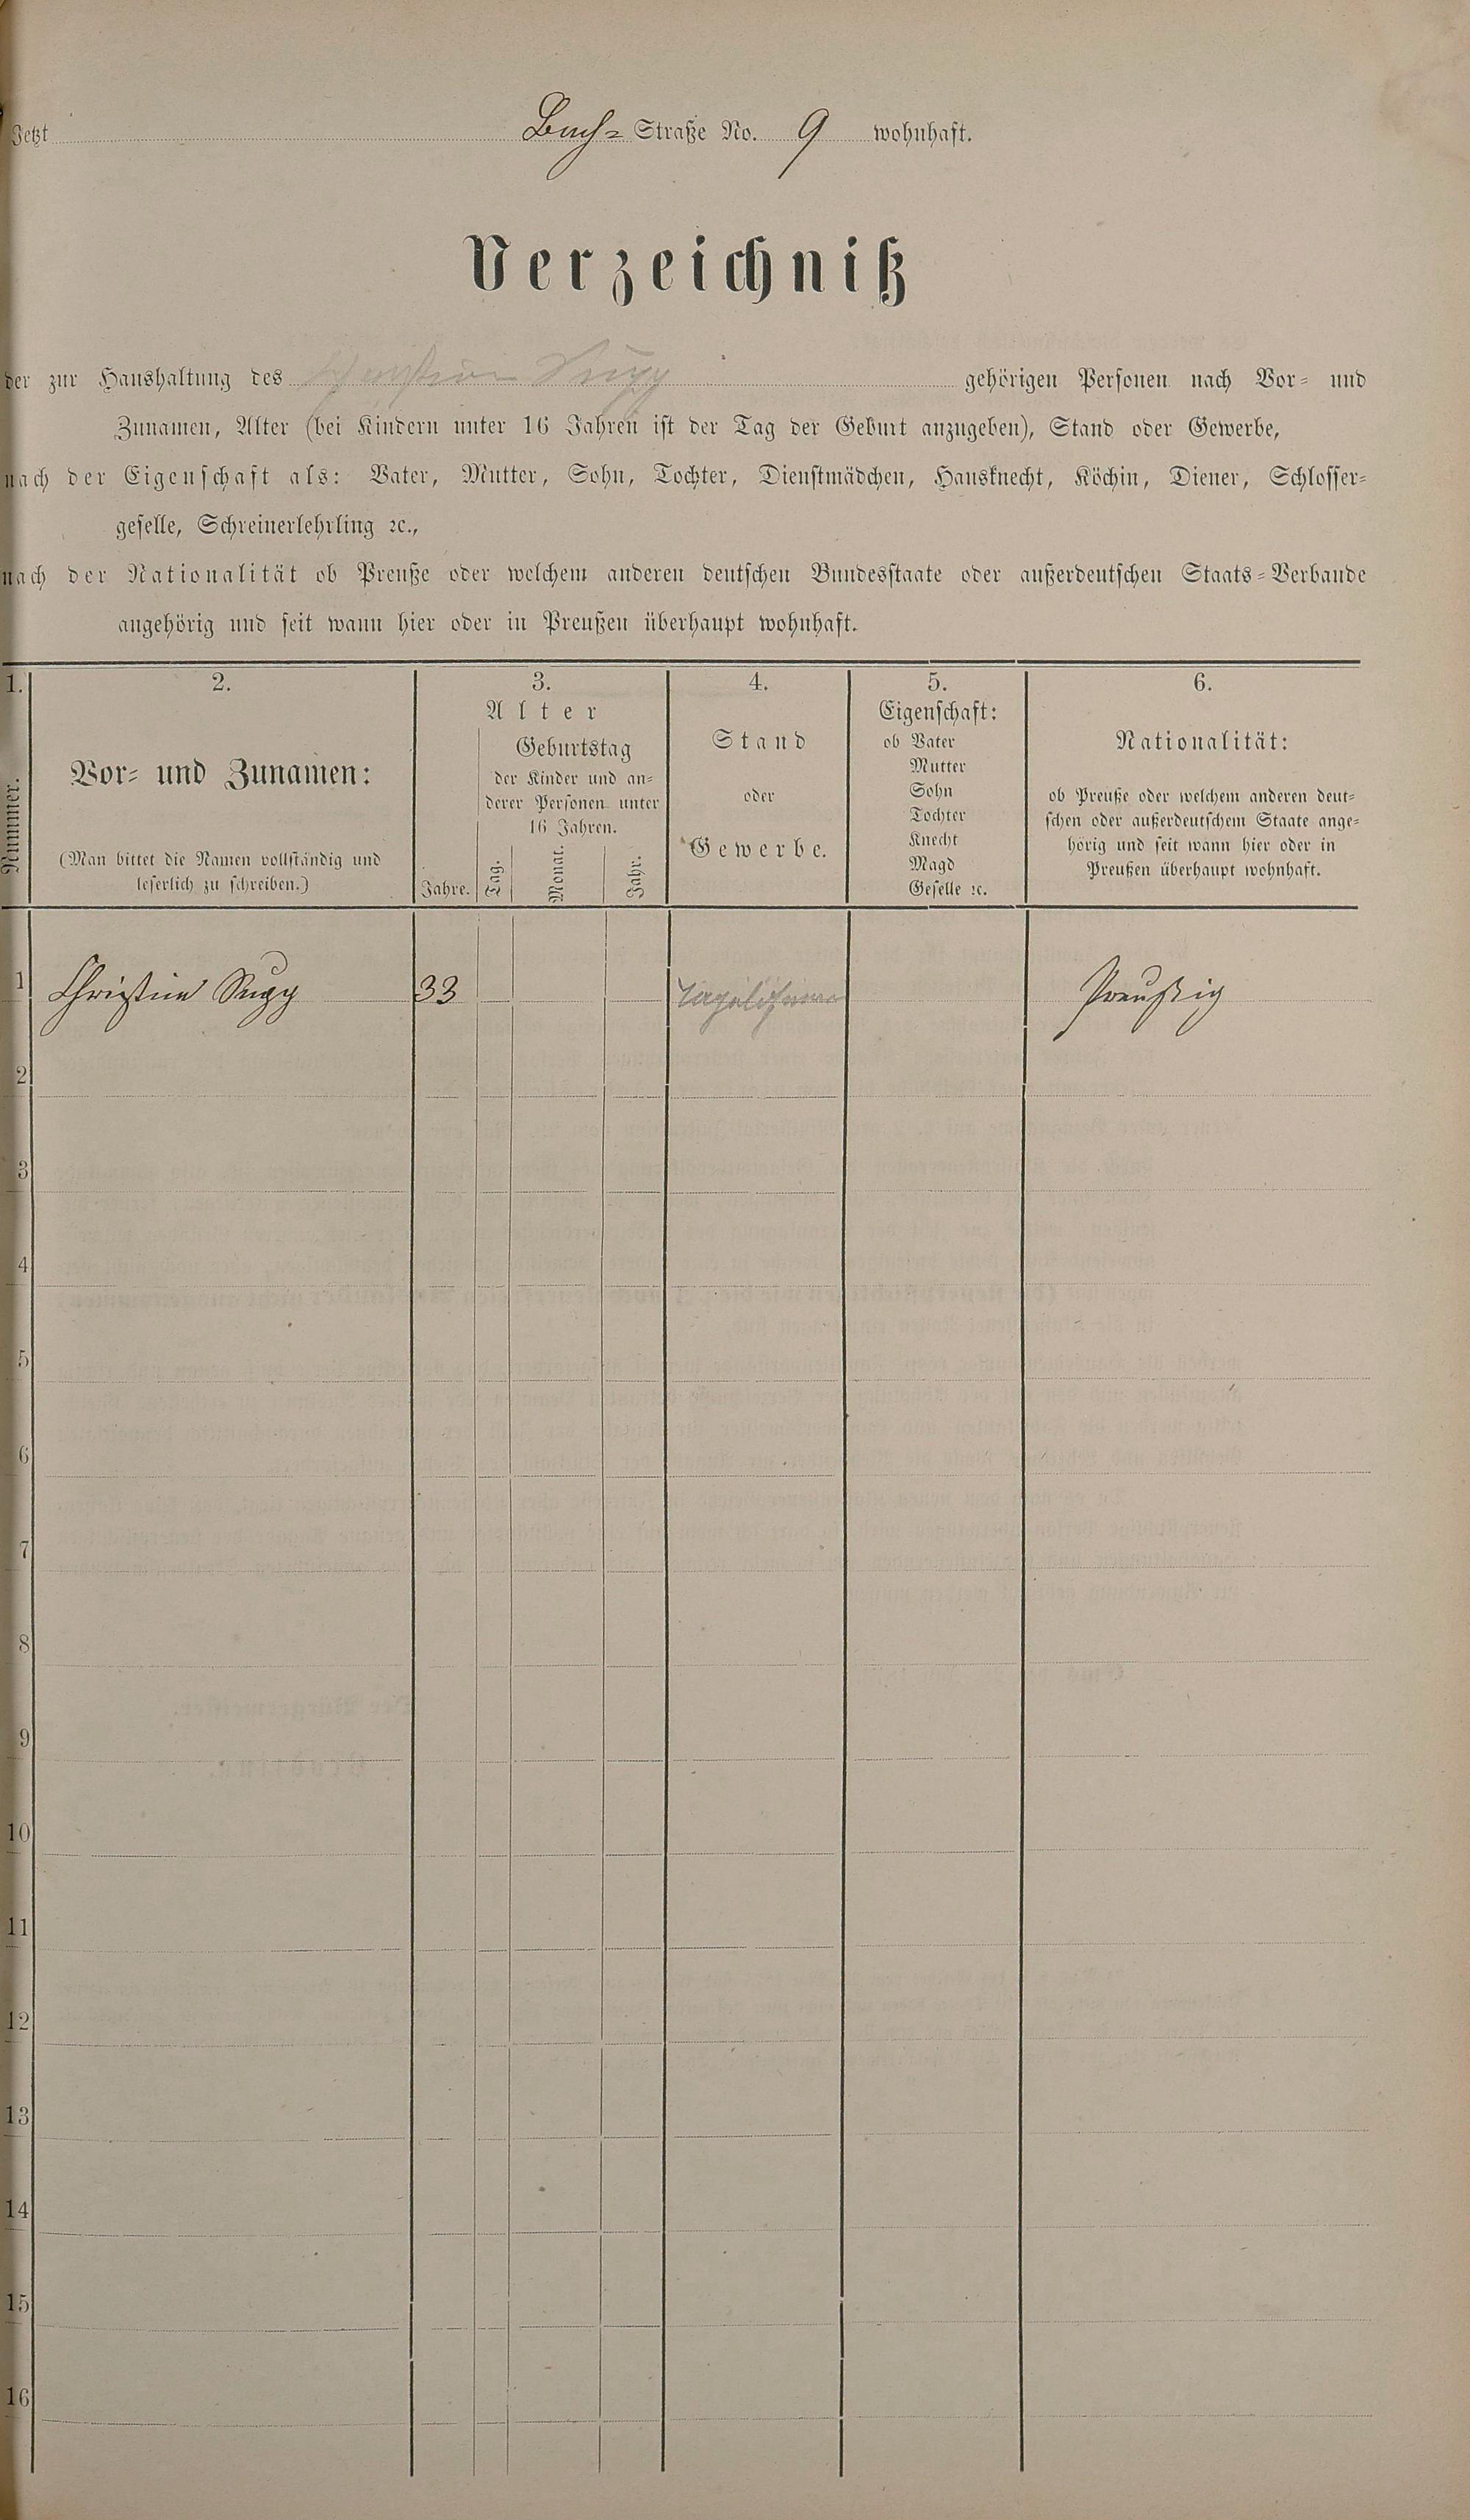 Jetzt Bach= Straße No. 9 wohnhaft.
Verzeichniß
der zur Haushaltung des gehörigen Personen nach Vor= und
Zunamen, Alter (bei Kindern unter 16 Jahren ist der Tag der Geburt anzugeben), Stand oder Gewerbe,
nach der Eigenschaft als: Vater, Mutter, Sohn, Tochter, Dienstmädchen, Hausknecht, Köchin, Diener, Schlosser=
geselle, Schreinerlehrling ꝛc.,
nach der Nationalität ob Preuße oder welchem anderen deutschen Bundesstaate oder außerdeutschen Staats=Verbande
angehörig und seit wann hier oder in Preußen überhaupt wohnhaft.
1.
Nummer.
2.
Vor= und Zunamen:
(Man bittet die Namen vollständig und
leserlich zu schreiben.)
3.
Alter
Jahre.
Geburtstag
der Kinder und an=
derer Personen unter
16 Jahren.
Tag.
Monat.
Jahr.
4.
Stand
oder
Gewerbe.
5.
Eigenschaft:
ob Vater
Mutter
Sohn
Tochter
Knecht
Magd
Geselle ꝛc.
6.
Nationalität:
ob Preuße oder welchem anderen deut=
schen oder außerdeutschem Staate ange=
hörig und seit wann hier oder in
Preußen überhaupt wohnhaft.
1 33 Preußig
2
3
4
5
6
7
8
9
10
11
12
13
14
15
16